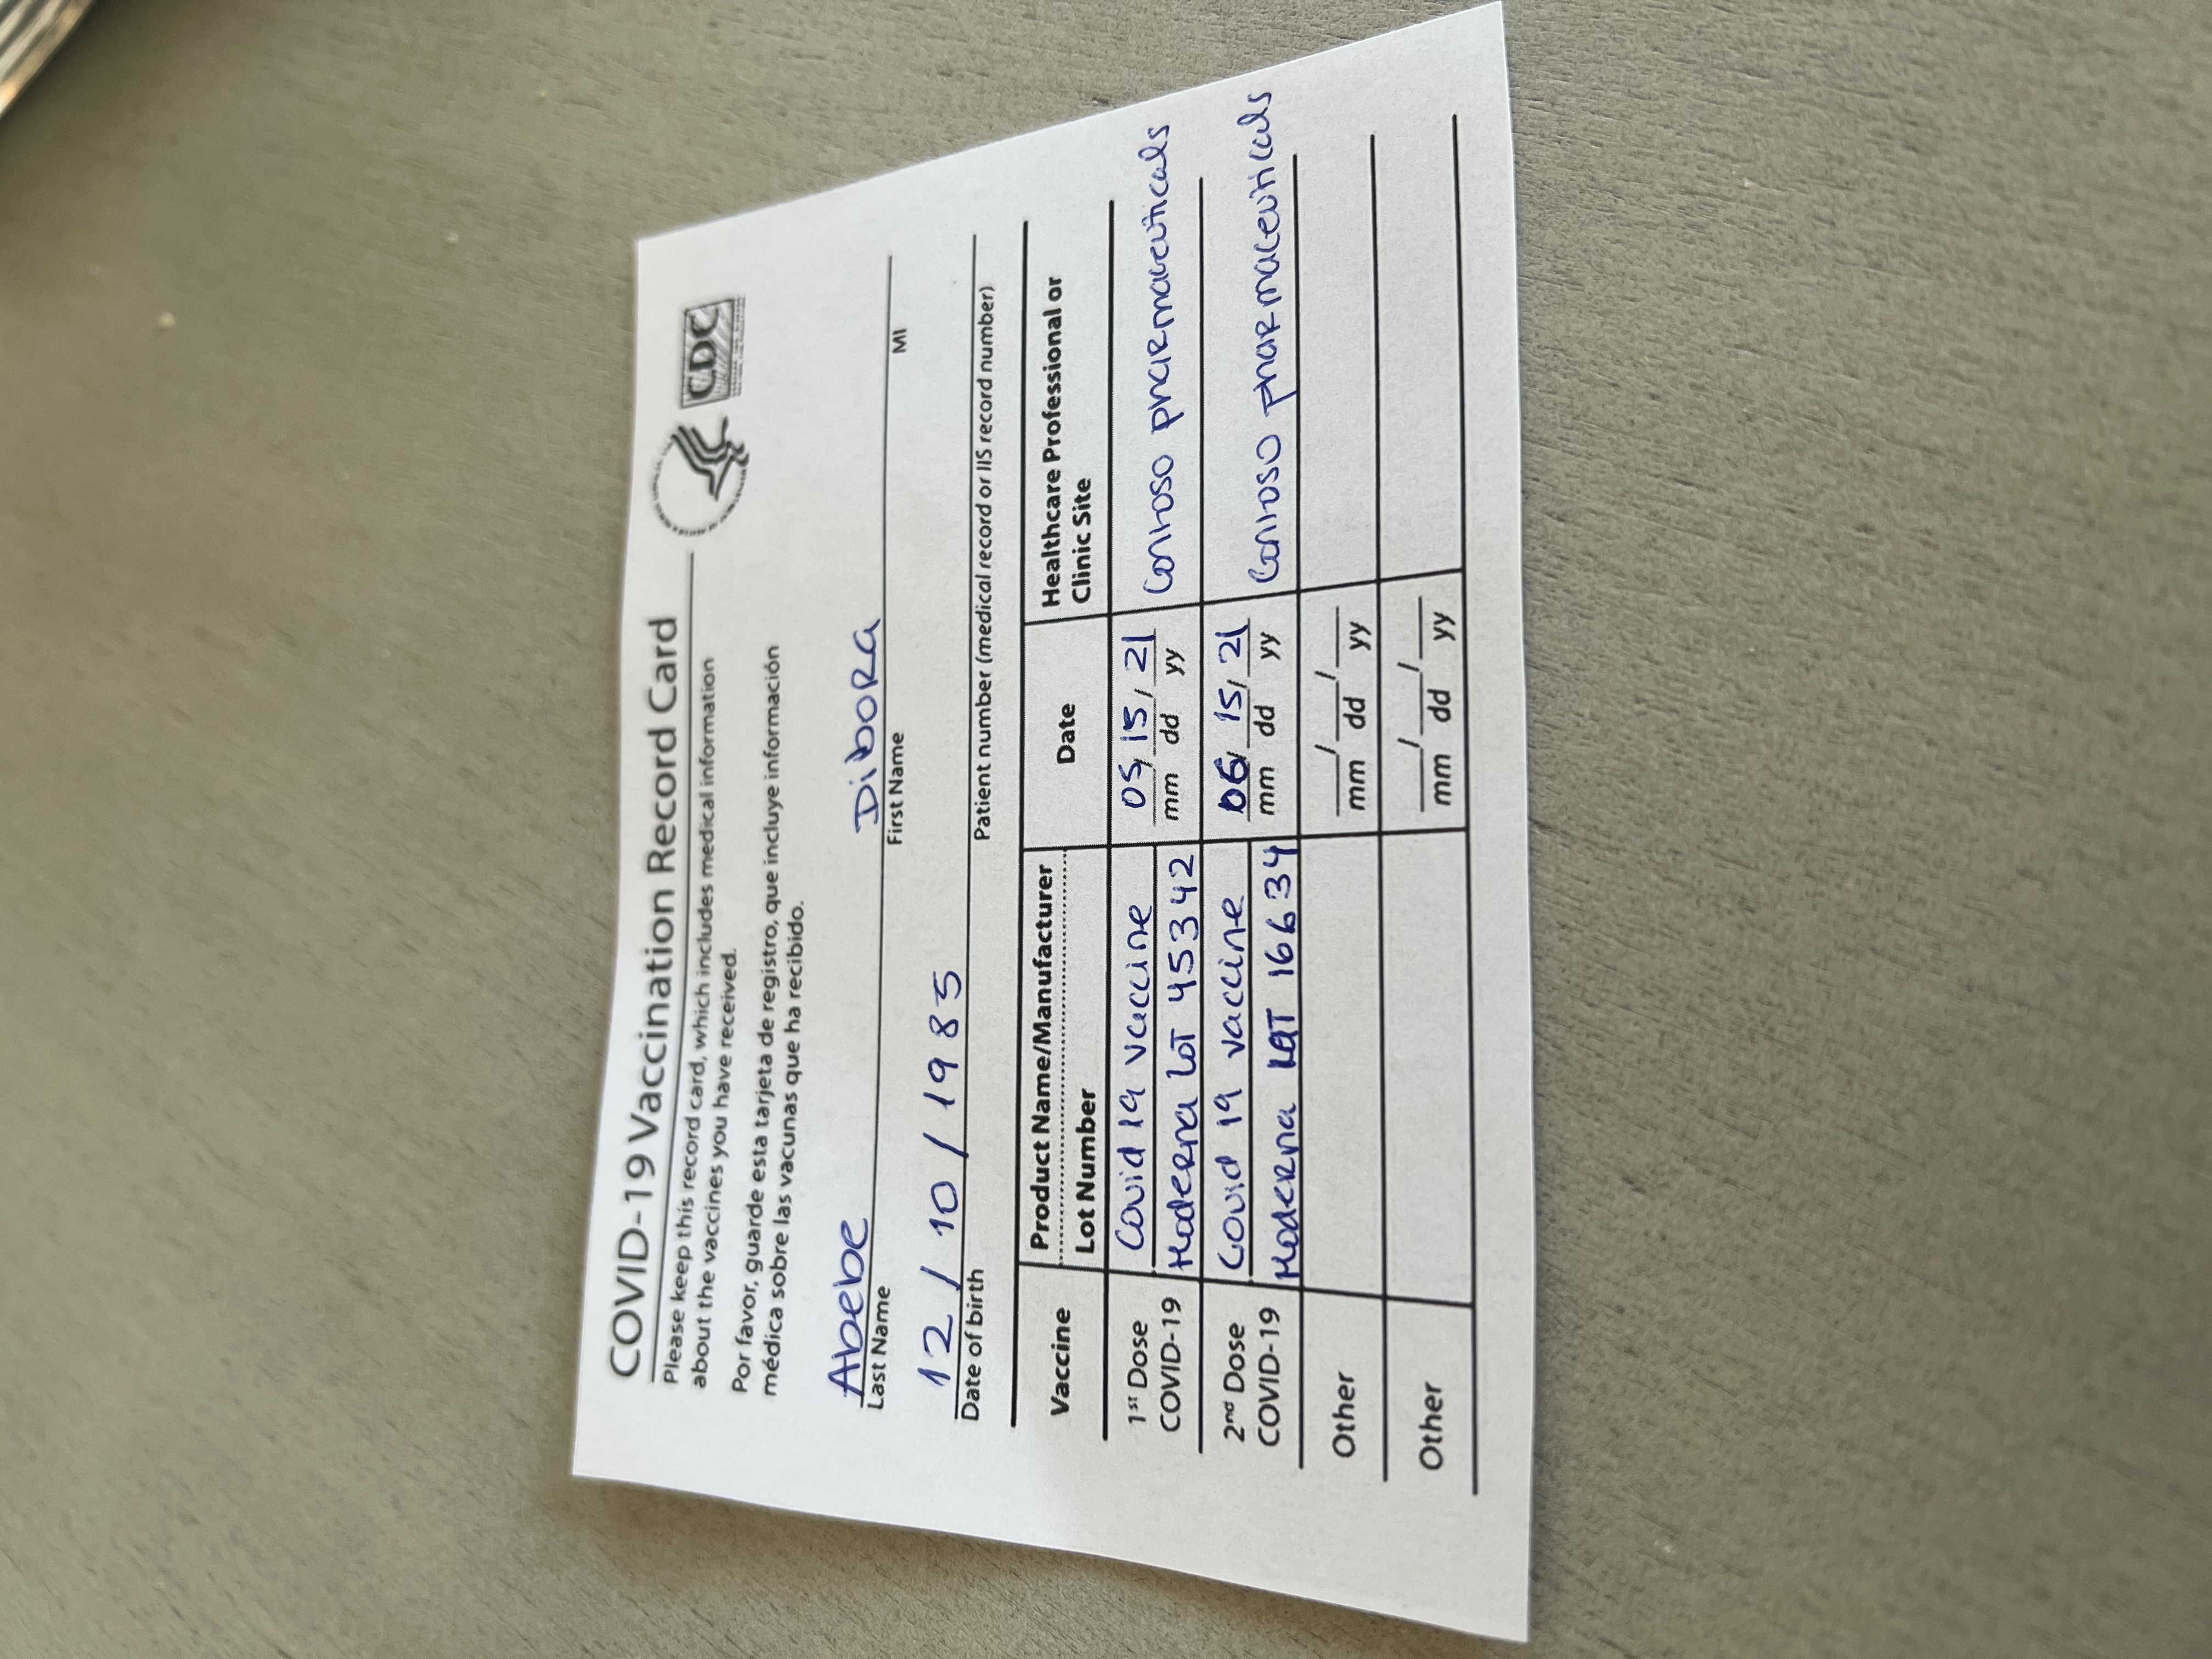 COVID-19 Vaccination Record Card
Please keep this record card, which includes medical information
about the vaccines you have received.
CDC
Por favor, guarde esta tarjeta de registro, que incluye información
médica sobre las vacunas que ha recibido.
Abebe Dibora
Last Name First Name MI
12 / 10 / 1985
Date of birth Patient number (medical record or IIS record number)
Vaccine
Product Name/Manufacturer
Lot Number
Date
Healthcare Professional or
Clinic Site
1st Dose
COVID-19
Covid 19 vaccine
Moderna LOT 45342
05/ 15/ 21
mm dd yy
Contoso pharmaceuticals
2nd Dose
COVID-19
Covid 19 vaccine
Moderna LOT 16634
06/ 15/ 21
mm dd yy
Contoso pharmaceuticals
Other
___/___/___
mm dd yy
Other
___/___/___
mm dd yy